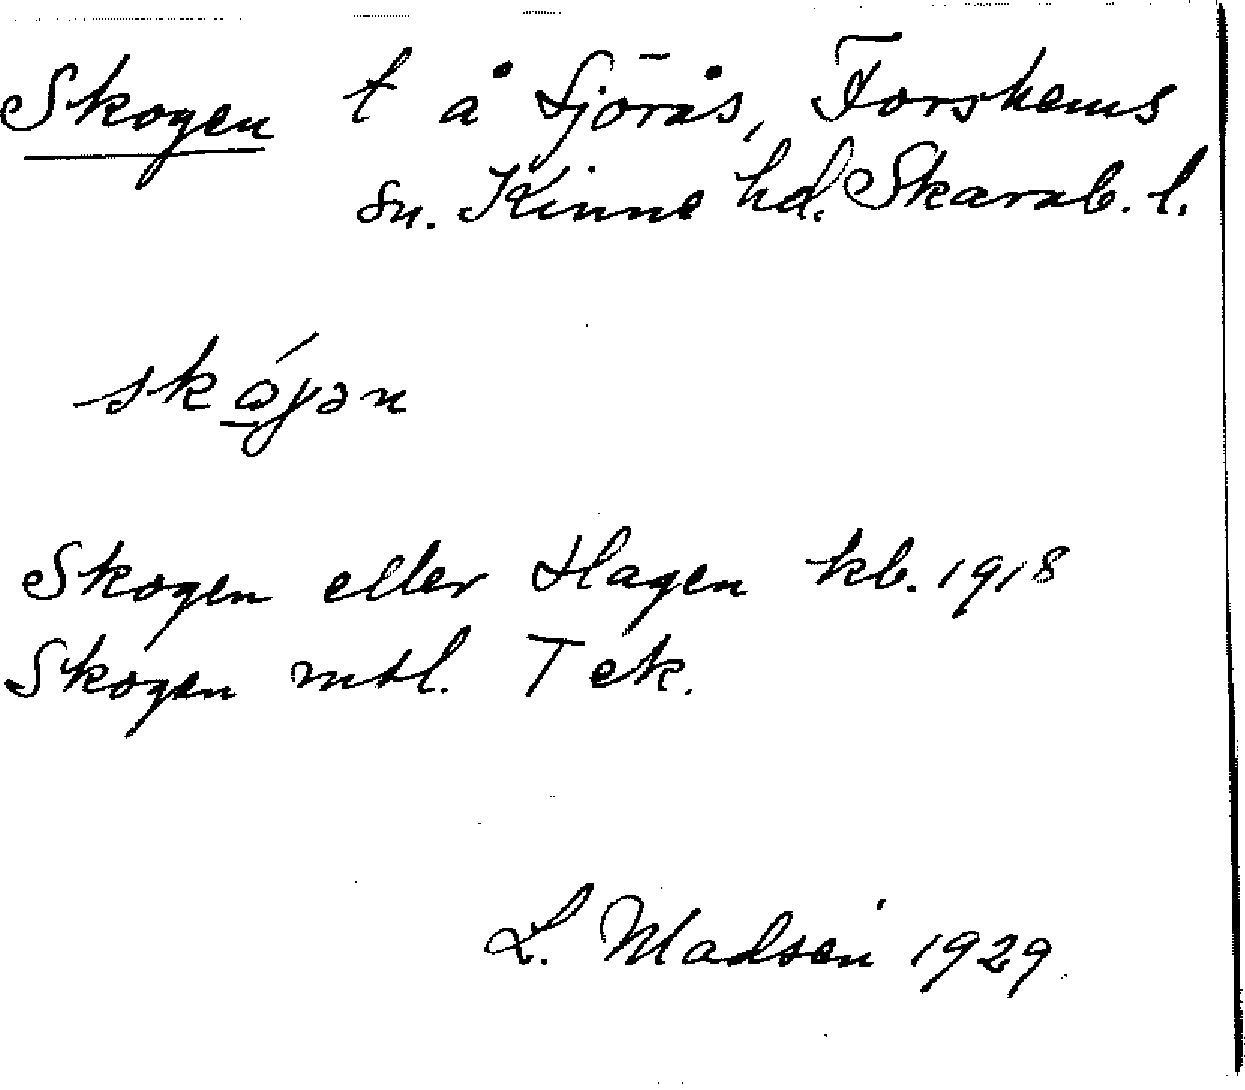 Skogen t å Sjörås, Forshems
sn. Kinne hd. Skarab. l.
skógən
Skogen eller Hagen kb. 1918
Skogen mtl. T ek.
L. Madsén 1929